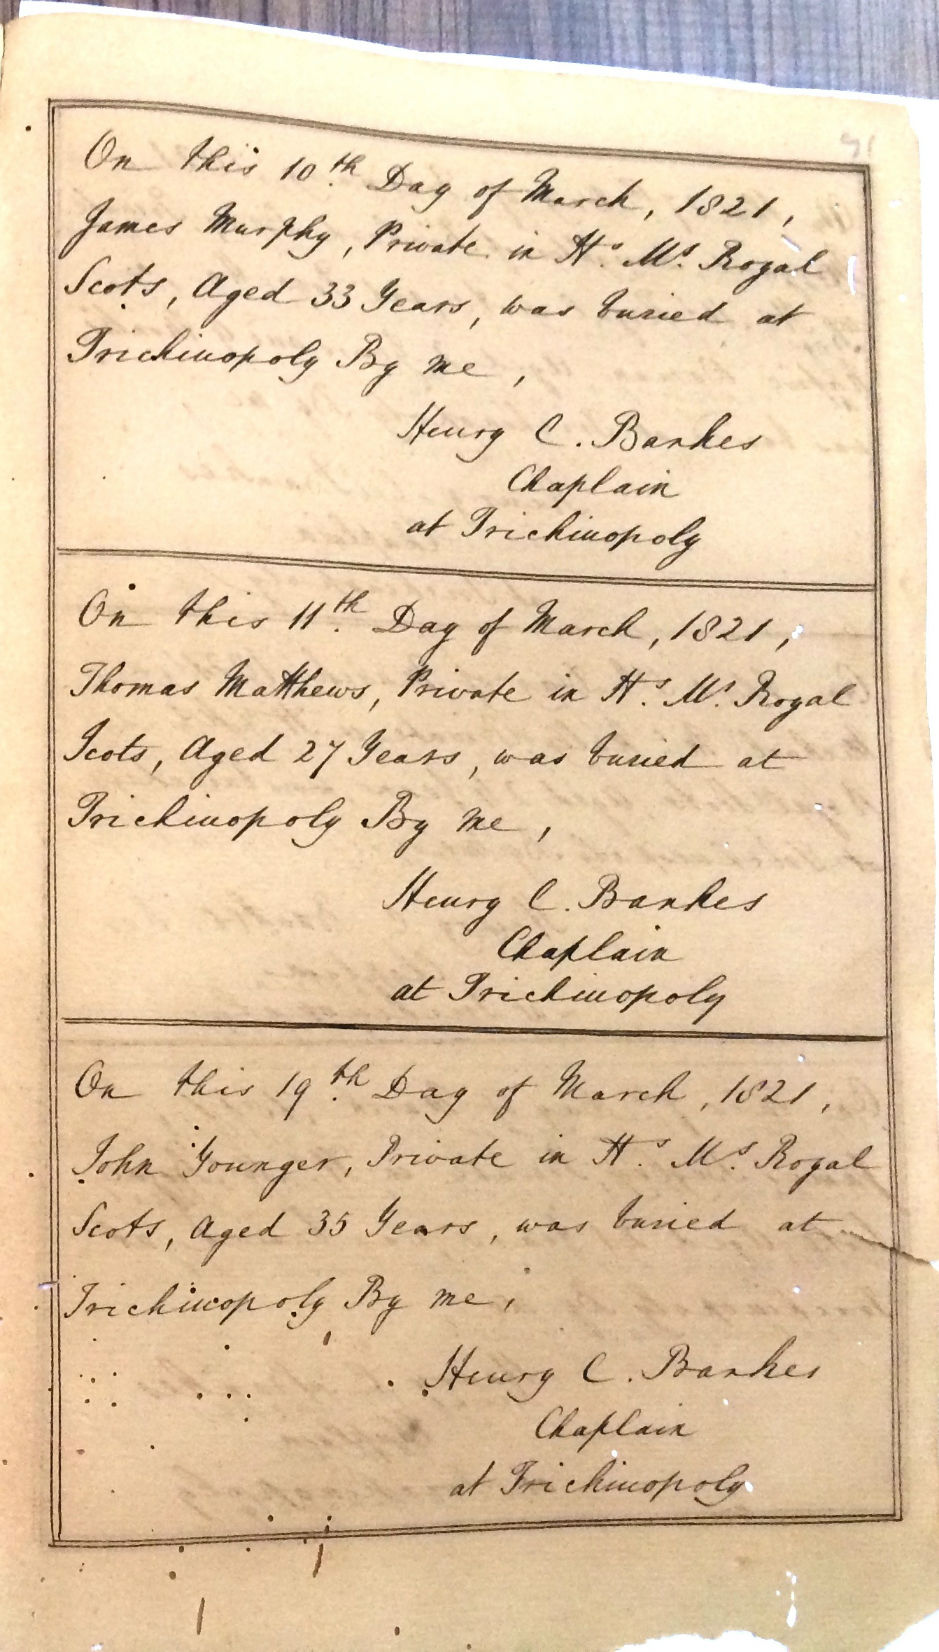 On this 10th Day of March, 1821,
James Murphy, Private in Hs. Ms. Royal
Scots, Aged 33 Years, was buried at
Trichinopoly By me,
Henry C. Bankes
Chaplain
at Trichinopoly
On this 11th Day of March, 1821,
Thomas Matthews, Private in Hs. Ms. Royal
Scots, Aged 27 Years, was buried at
Trichinopoly By me,
Henry C. Bankes
Chaplain
at Trichinopoly
On this 19th Day of March, 1821,
John Younger, Private in Hs. Ms. Royal
Scots, Aged 35 Years, was buried at
Trichinopoly By me,
Henry C. Bankes
Chaplain
at Trichinopoly